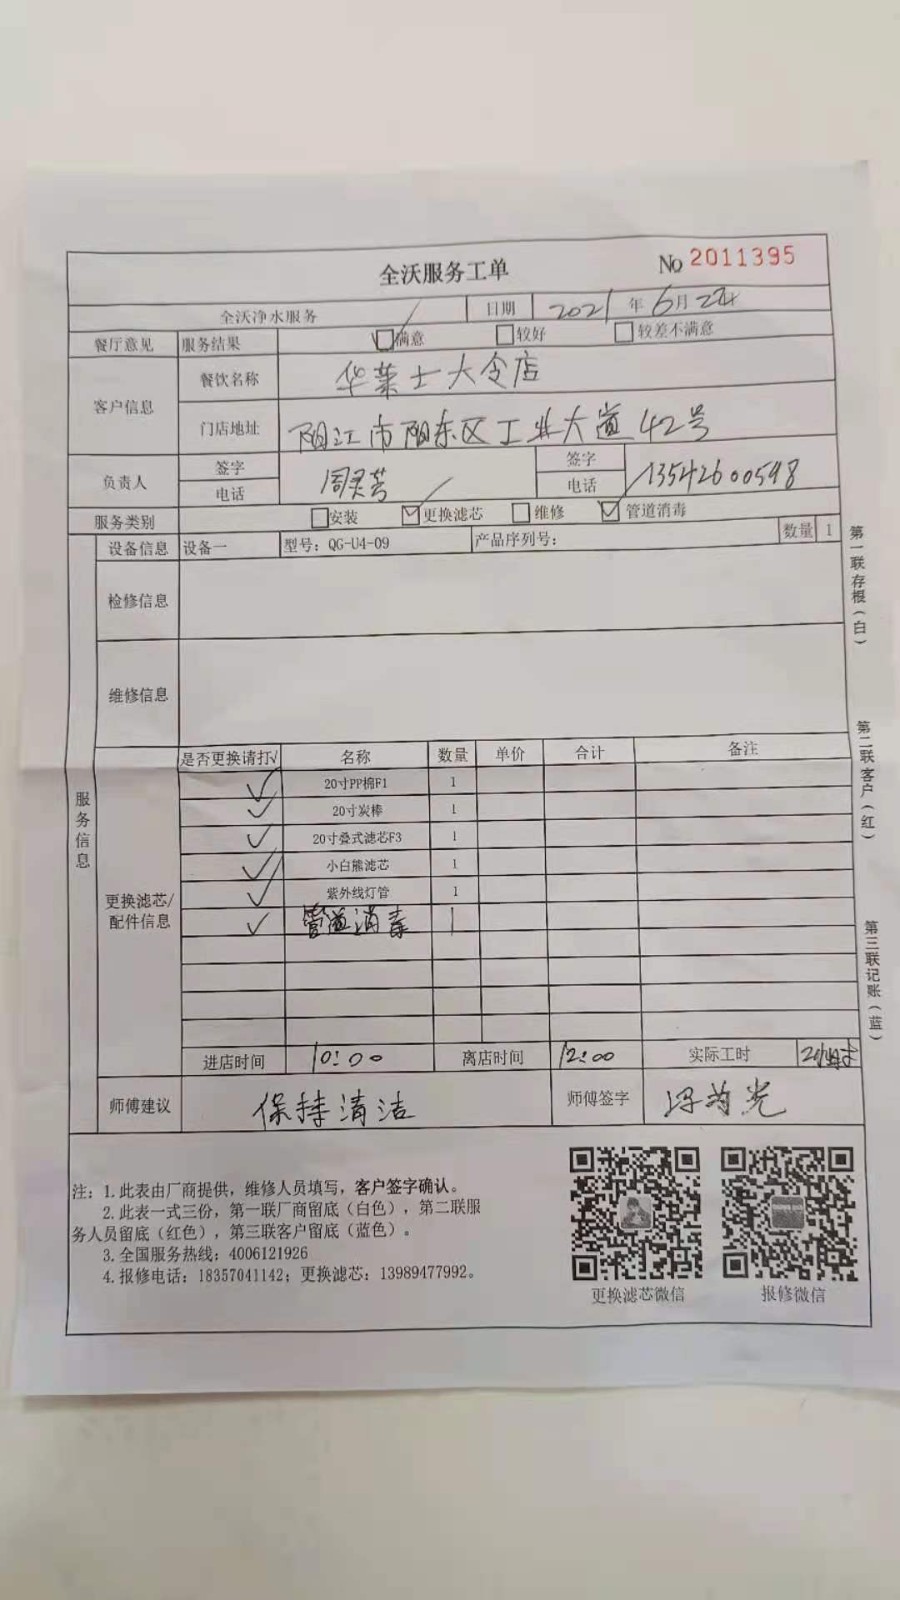 全沃服务工单 No 2011395
全沃净水服务 日期 2021 年 6月 24
餐厅意见 服务结果 满意 较好 较差不满意
客户信息 餐饮名称 华莱士大令店
门店地址 阳江市阳东区工业大道42号
负责人 签字 周灵芳 签字
电话 电话 13542600598
服务类别 安装 更换滤芯 维修 管道消毒
设备信息 设备一 型号：QG-U4-09 产品序列号： 数量 1
检修信息
维修信息
服务信息
更换滤芯/
配件信息
是否更换请打√ 名称 数量 单价 合计 备注
√ 20寸PP棉F1 1
√ 20寸炭棒 1
√ 20寸叠式滤芯F3 1
√ 小白熊滤芯 1
√ 紫外线灯管 1
√ 管道消毒 1
进店时间 10:00 离店时间 12:00 实际工时 2小时
师傅建议 保持清洁 师傅签字
注：1.此表由厂商提供，维修人员填写，客户签字确认。
2.此表一式三份，第一联厂商留底（白色），第二联服
务人员留底（红色），第三联客户留底（蓝色）。
3.全国服务热线：4006121926
4.报修电话：18357041142；更换滤芯：13989477992。
更换滤芯微信 报修微信
第一联存根（白）
第二联客户（红）
第三联记账（蓝）